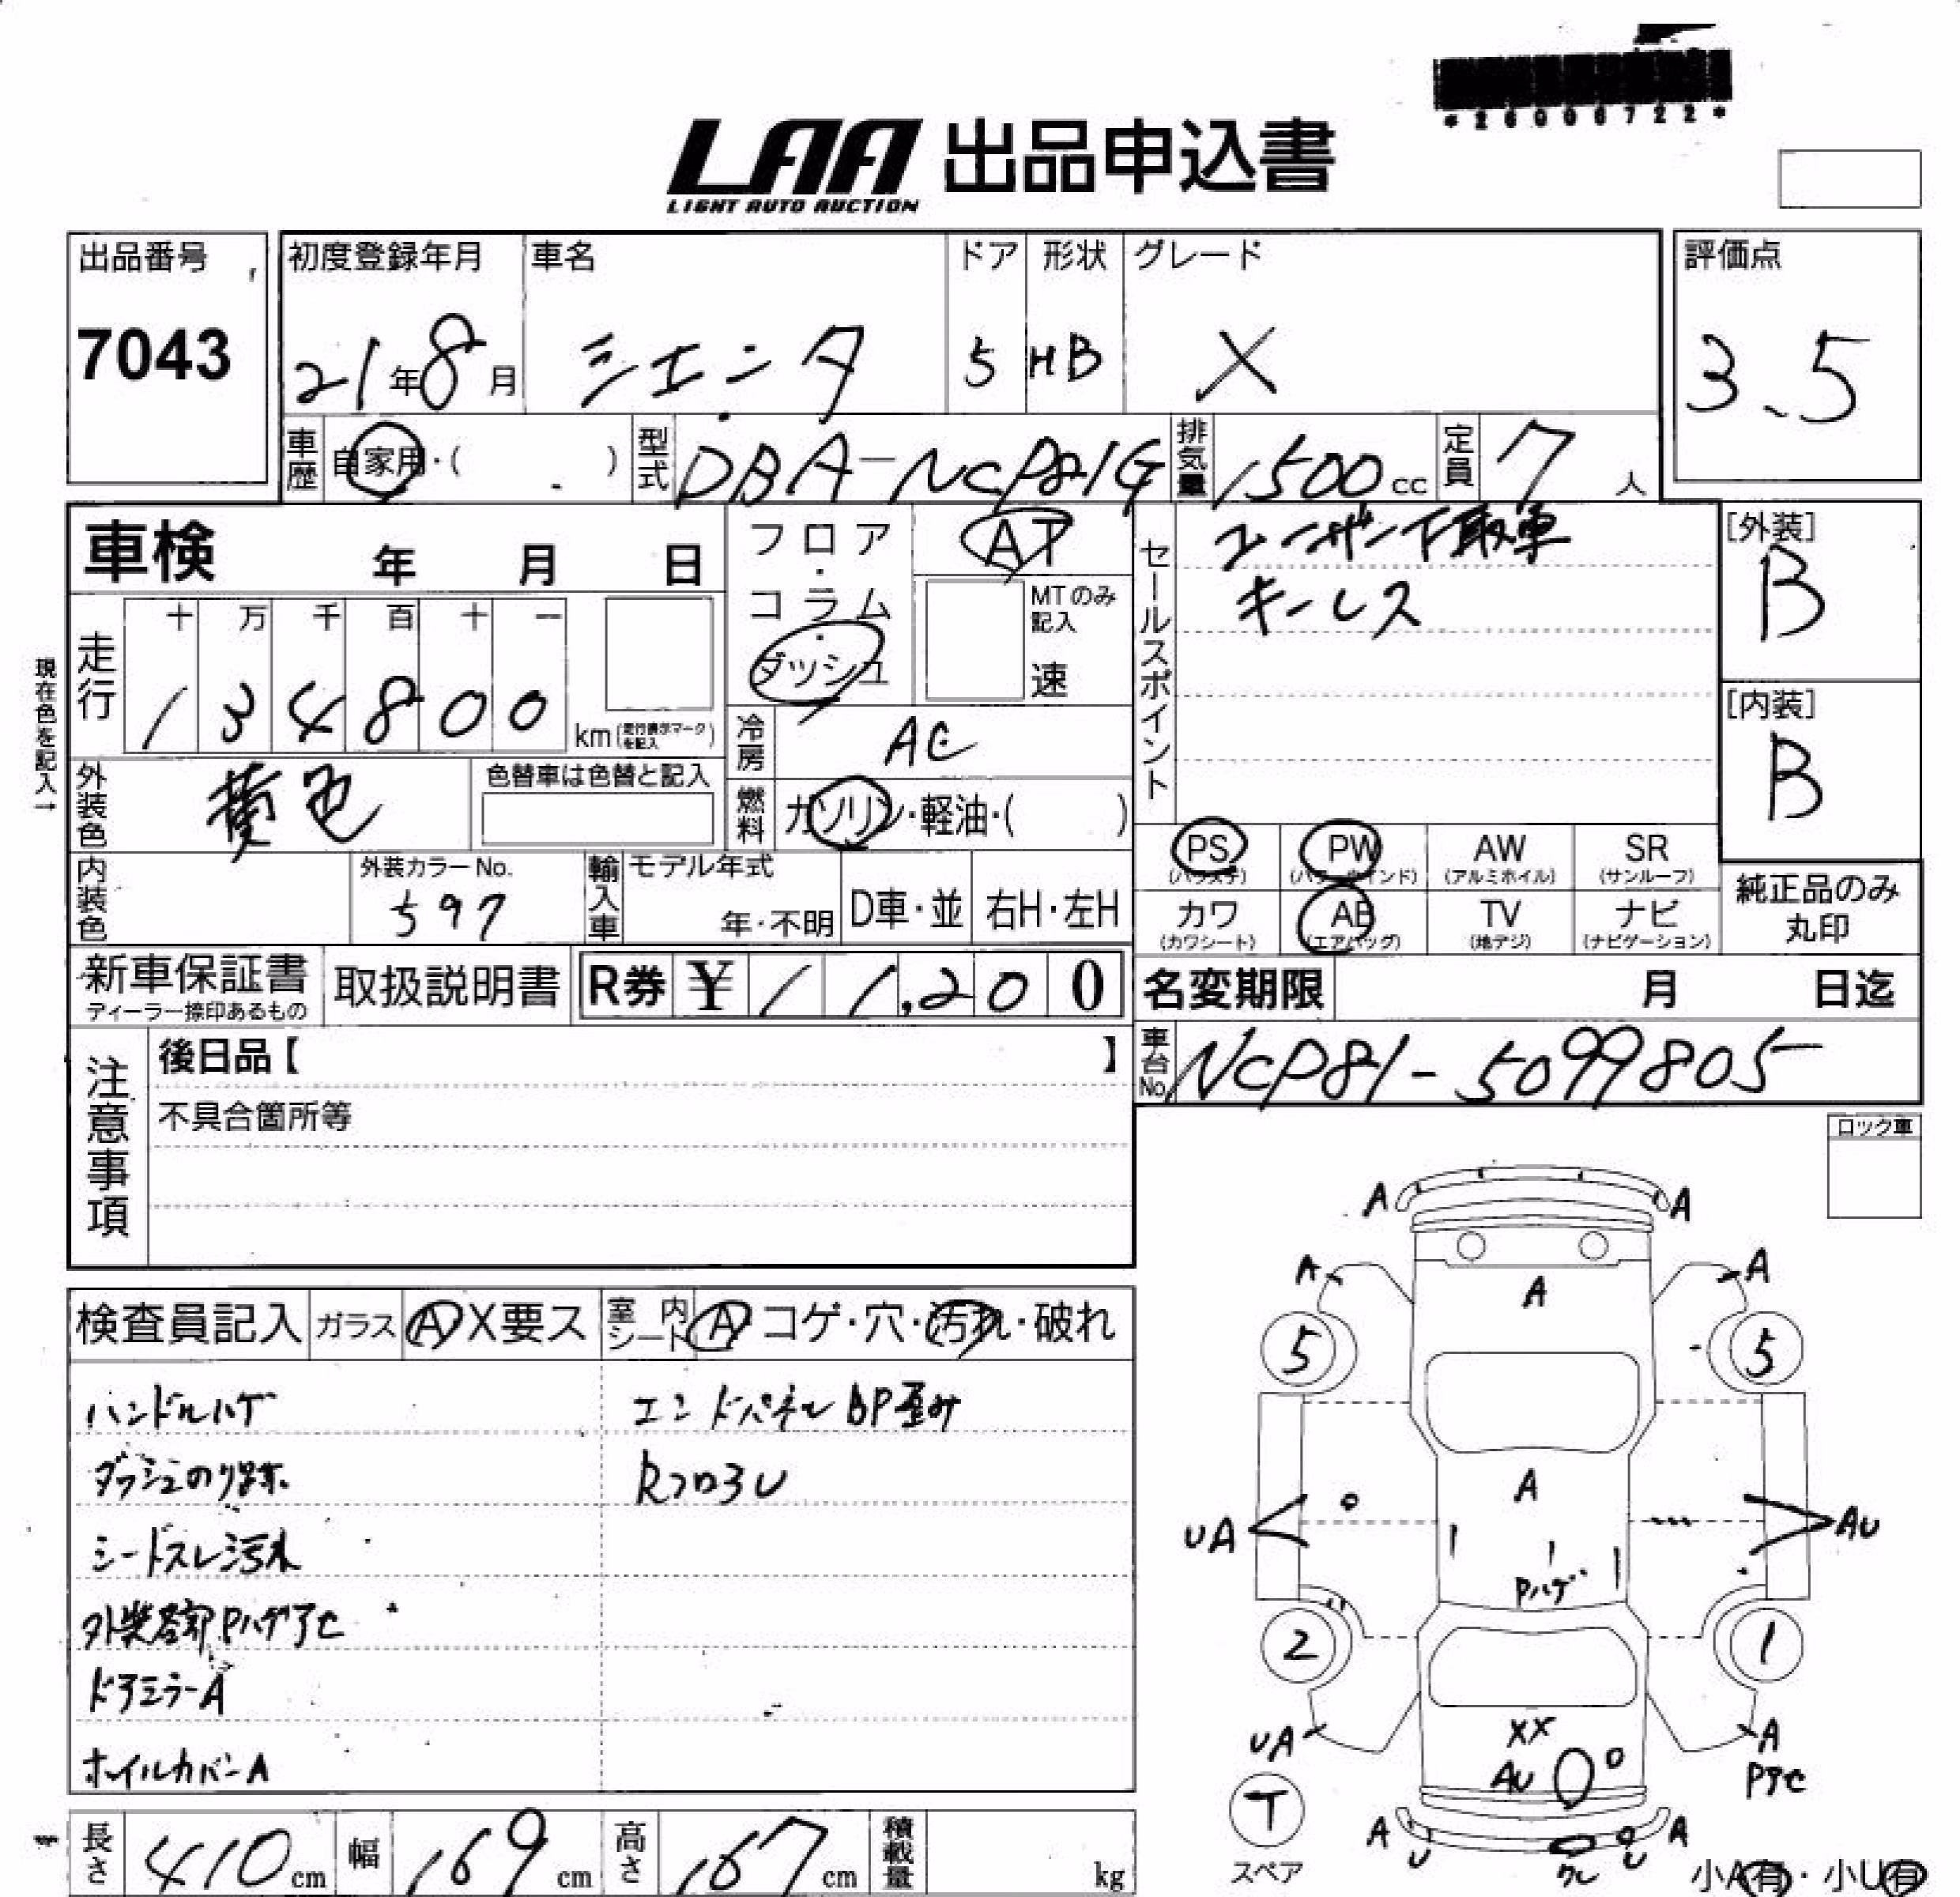 *26006722*
LAA 出品申込書
LIGHT AUTO AUCTION
出品番号
7043
初度登録年月
21年8月
車名
シエンタ
ドア
5
形状
HB
グレード
X
評価点
3.5
車歴
自家用・( )
型式
DBA-NCP81G
排気量
1500cc
定員
7人
車検 年 月 日
フロア・コラム・ダッシュ
AT
MTのみ記入
速
セールスポイント
ユーザー下取車
キーレス
[外装]
B
[内装]
B
現在色を記入→
走行
十万千百十一
134800
km(走行表示マークを記入)
冷房
AC
外装色
黄色
色替車は色替と記入
燃料
ガソリン・軽油・( )
PS
(パワステ)
PW
(パワーウインド)
AW
(アルミホイル)
SR
(サンルーフ)
カワ
(カワシート)
AB
(エアバッグ)
TV
(地デジ)
ナビ
(ナビゲーション)
純正品のみ
丸印
内装色
外装カラーNo.
597
輸入車
モデル年式
年・不明
D車・並
右H・左H
新車保証書
ディーラー捺印あるもの
取扱説明書
R券 ¥11,200
名変期限 月 日迄
車台No.
NCP81-5099805
注意事項
後日品【 】
不具合箇所等
ロック車
検査員記入
ガラス
A X 要ス
室内シート
A コゲ・穴・汚れ・破れ
ハンドルハゲ
エンドパネルBP歪み
ダッシュのり跡
RフロアU
シートスレ汚れ
外装各部Pハゲアセ
ドアミラーA
ホイルカバーA
A A
A A
A
5 5
A
UA AU
Pハゲ
2 1
XX
UA A
AU
Pアセ
T
スペア
A A
U U
ワレ
小A有・小U有
長さ 410cm
幅 169cm
高さ 167cm
積載量 kg